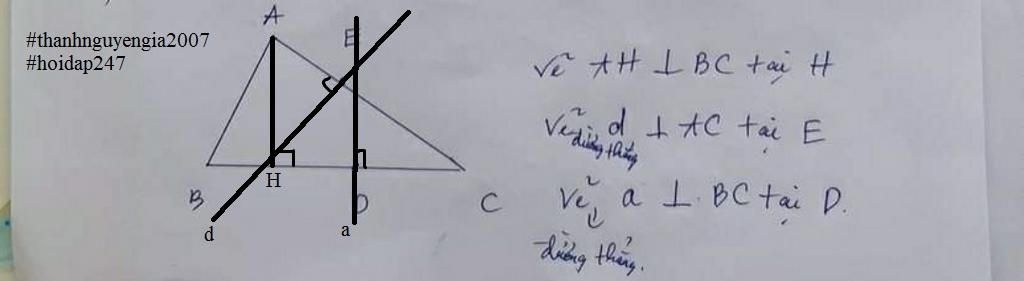 #thanhnguyengia2007
#hoidap247
A
E
B
H
D
C
d
a
Vẽ AH ⊥ BC tại H
Vẽ đường thẳng d ⊥ AC tại E
Vẽ a ⊥ BC tại D.
đường thẳng.